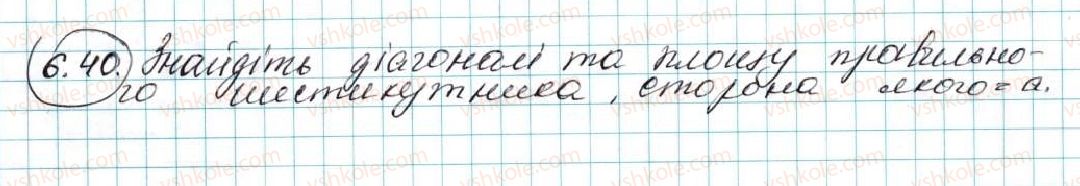 6.40. Знайдіть діагоналі та площу правильно-
го шестикутника, сторона якого = а.